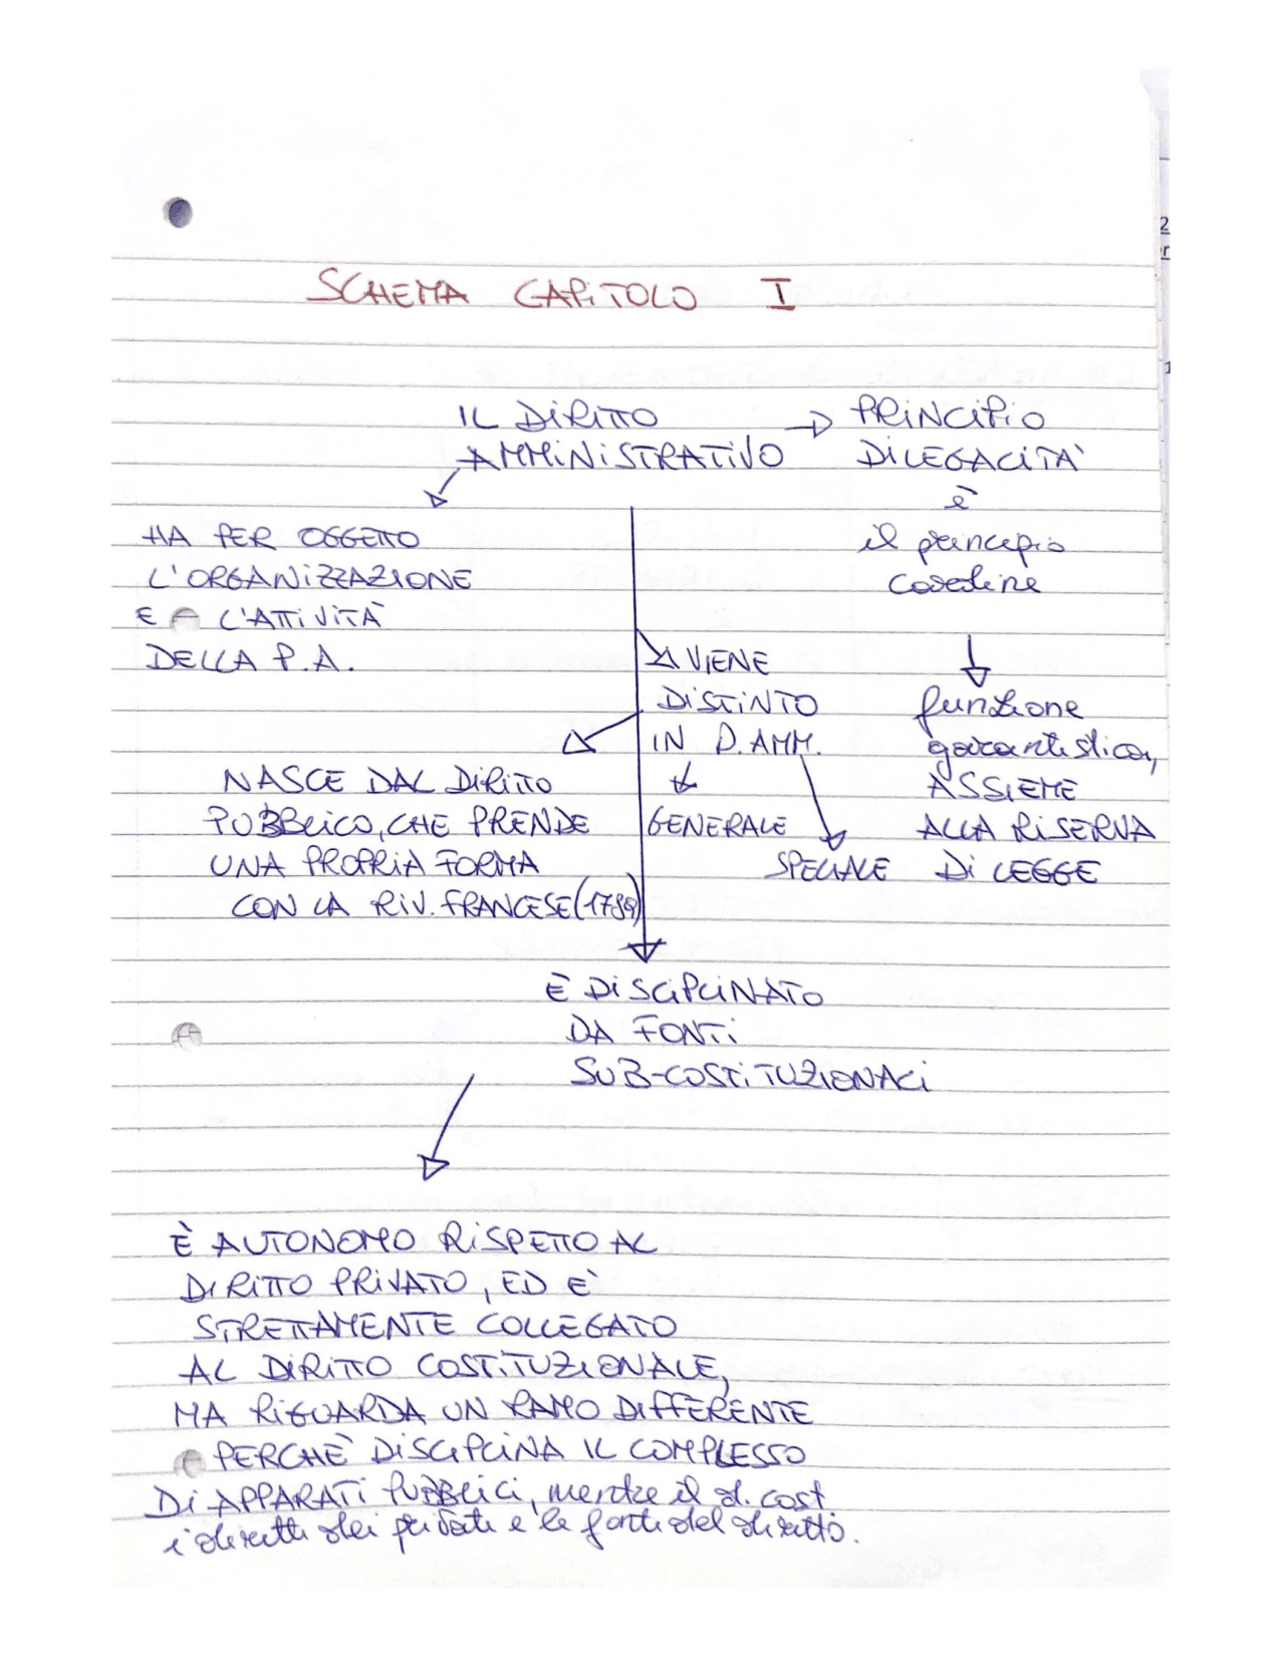 SCHEMA CAPITOLO I
IL DIRITTO
AMMINISTRATIVO
PRINCIPIO
DI LEGALITA'
è
il principio
cardine
HA PER OGGETTO
L'ORGANIZZAZIONE
E L'ATTIVITÀ
DELLA P.A.
VIENE
DISTINTO
IN D. AMM.
GENERALE
SPECIALE
funzione
garantistica,
ASSIEME
ALLA RISERVA
DI LEGGE
NASCE DAL DIRITTO
PUBBLICO, CHE PRENDE
UNA PROPRIA FORMA
CON LA RIV. FRANCESE (1789)
È DISCIPLINATO
DA FONTI
SUB-COSTITUZIONALI
È AUTONOMO RISPETTO AL
DIRITTO PRIVATO, ED E'
STRETTAMENTE COLLEGATO
AL DIRITTO COSTITUZIONALE,
MA RIGUARDA UN RAMO DIFFERENTE
PERCHÈ DISCIPLINA IL COMPLESSO
DI APPARATI PUBBLICI, mentre il d. cost
i diritti dei privati e le fonti del diritto.